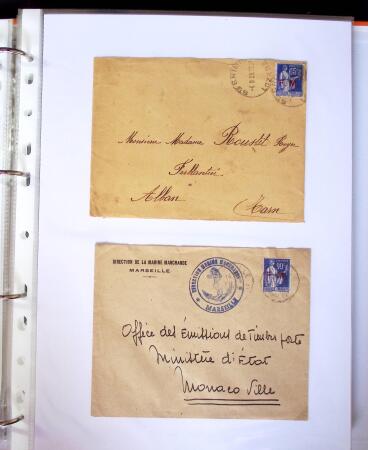 Monsieur Madame Roustit Roger
Alban (Tarn)
DIRECTION DE LA MARINE MARCHANDE
MARSEILLE
DIRECTION MARINE MARCHANDE
MARSEILLE
Office des Émissions de Timbres poste
Ministère d'État
Monaco Ville